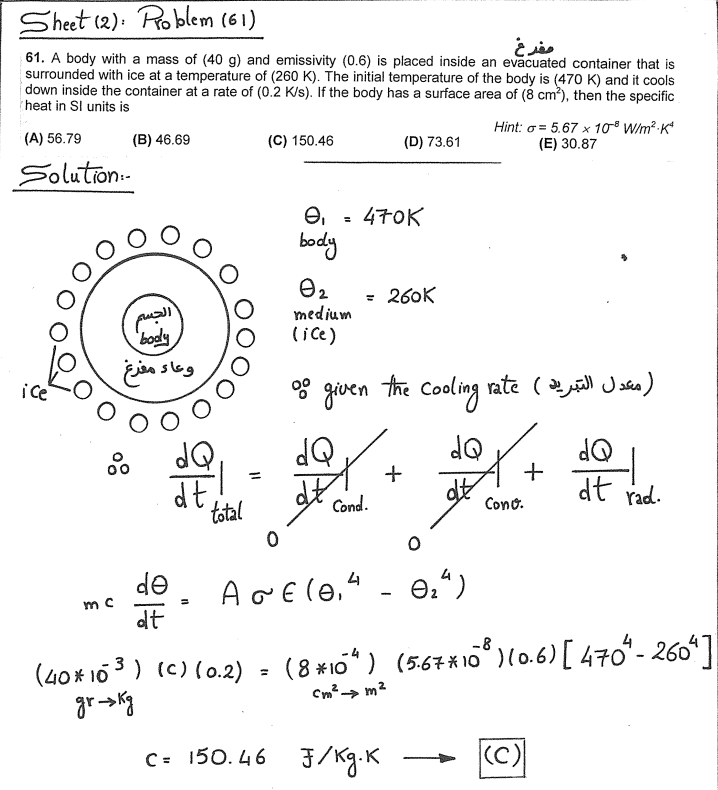 Sheet (2): Problem (61)
مفرغ
61. A body with a mass of (40 g) and emissivity (0.6) is placed inside an evacuated container that is
surrounded with ice at a temperature of (260 K). The initial temperature of the body is (470 K) and it cools
down inside the container at a rate of (0.2 K/s). If the body has a surface area of (8 cm²), then the specific
heat in SI units is
Hint: σ = 5.67 × 10⁻⁸ W/m²·K⁴
(A) 56.79 (B) 46.69 (C) 150.46 (D) 73.61 (E) 30.87
Solution:-
θ₁ = 470K
body
θ₂ = 260K
medium
(ice)
الجسم
body
وعاء مفرغ
ice
∵ given the cooling rate (معدل التبريد)
∴ dQ/dt|total = dQ/dt|Cond. + dQ/dt|Conv. + dQ/dt|rad.
0 0
mc dθ/dt = A σ ϵ (θ₁⁴ - θ₂⁴)
(40*10⁻³) (c) (0.2) = (8*10⁻⁴) (5.67*10⁻⁸) (0.6) [470⁴ - 260⁴]
gr→Kg cm²→m²
C = 150.46 J/Kg.K → (C)